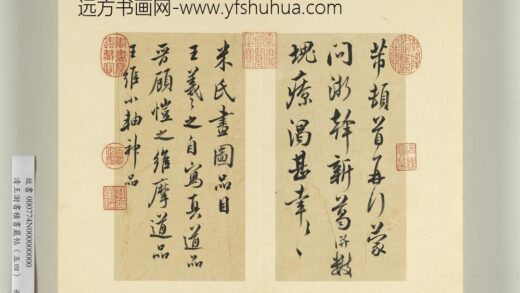 远方书画网-www.yfshuhua.com
芾頓首再行蒙
問浙幹新葛數
塊療渴甚幸〻
米氏畫圖品目
王羲之自寫真道品
晉顧愷之維摩道品
王維小軸神品
故書 000774N00000000
清王澍書積書巖帖（五四）